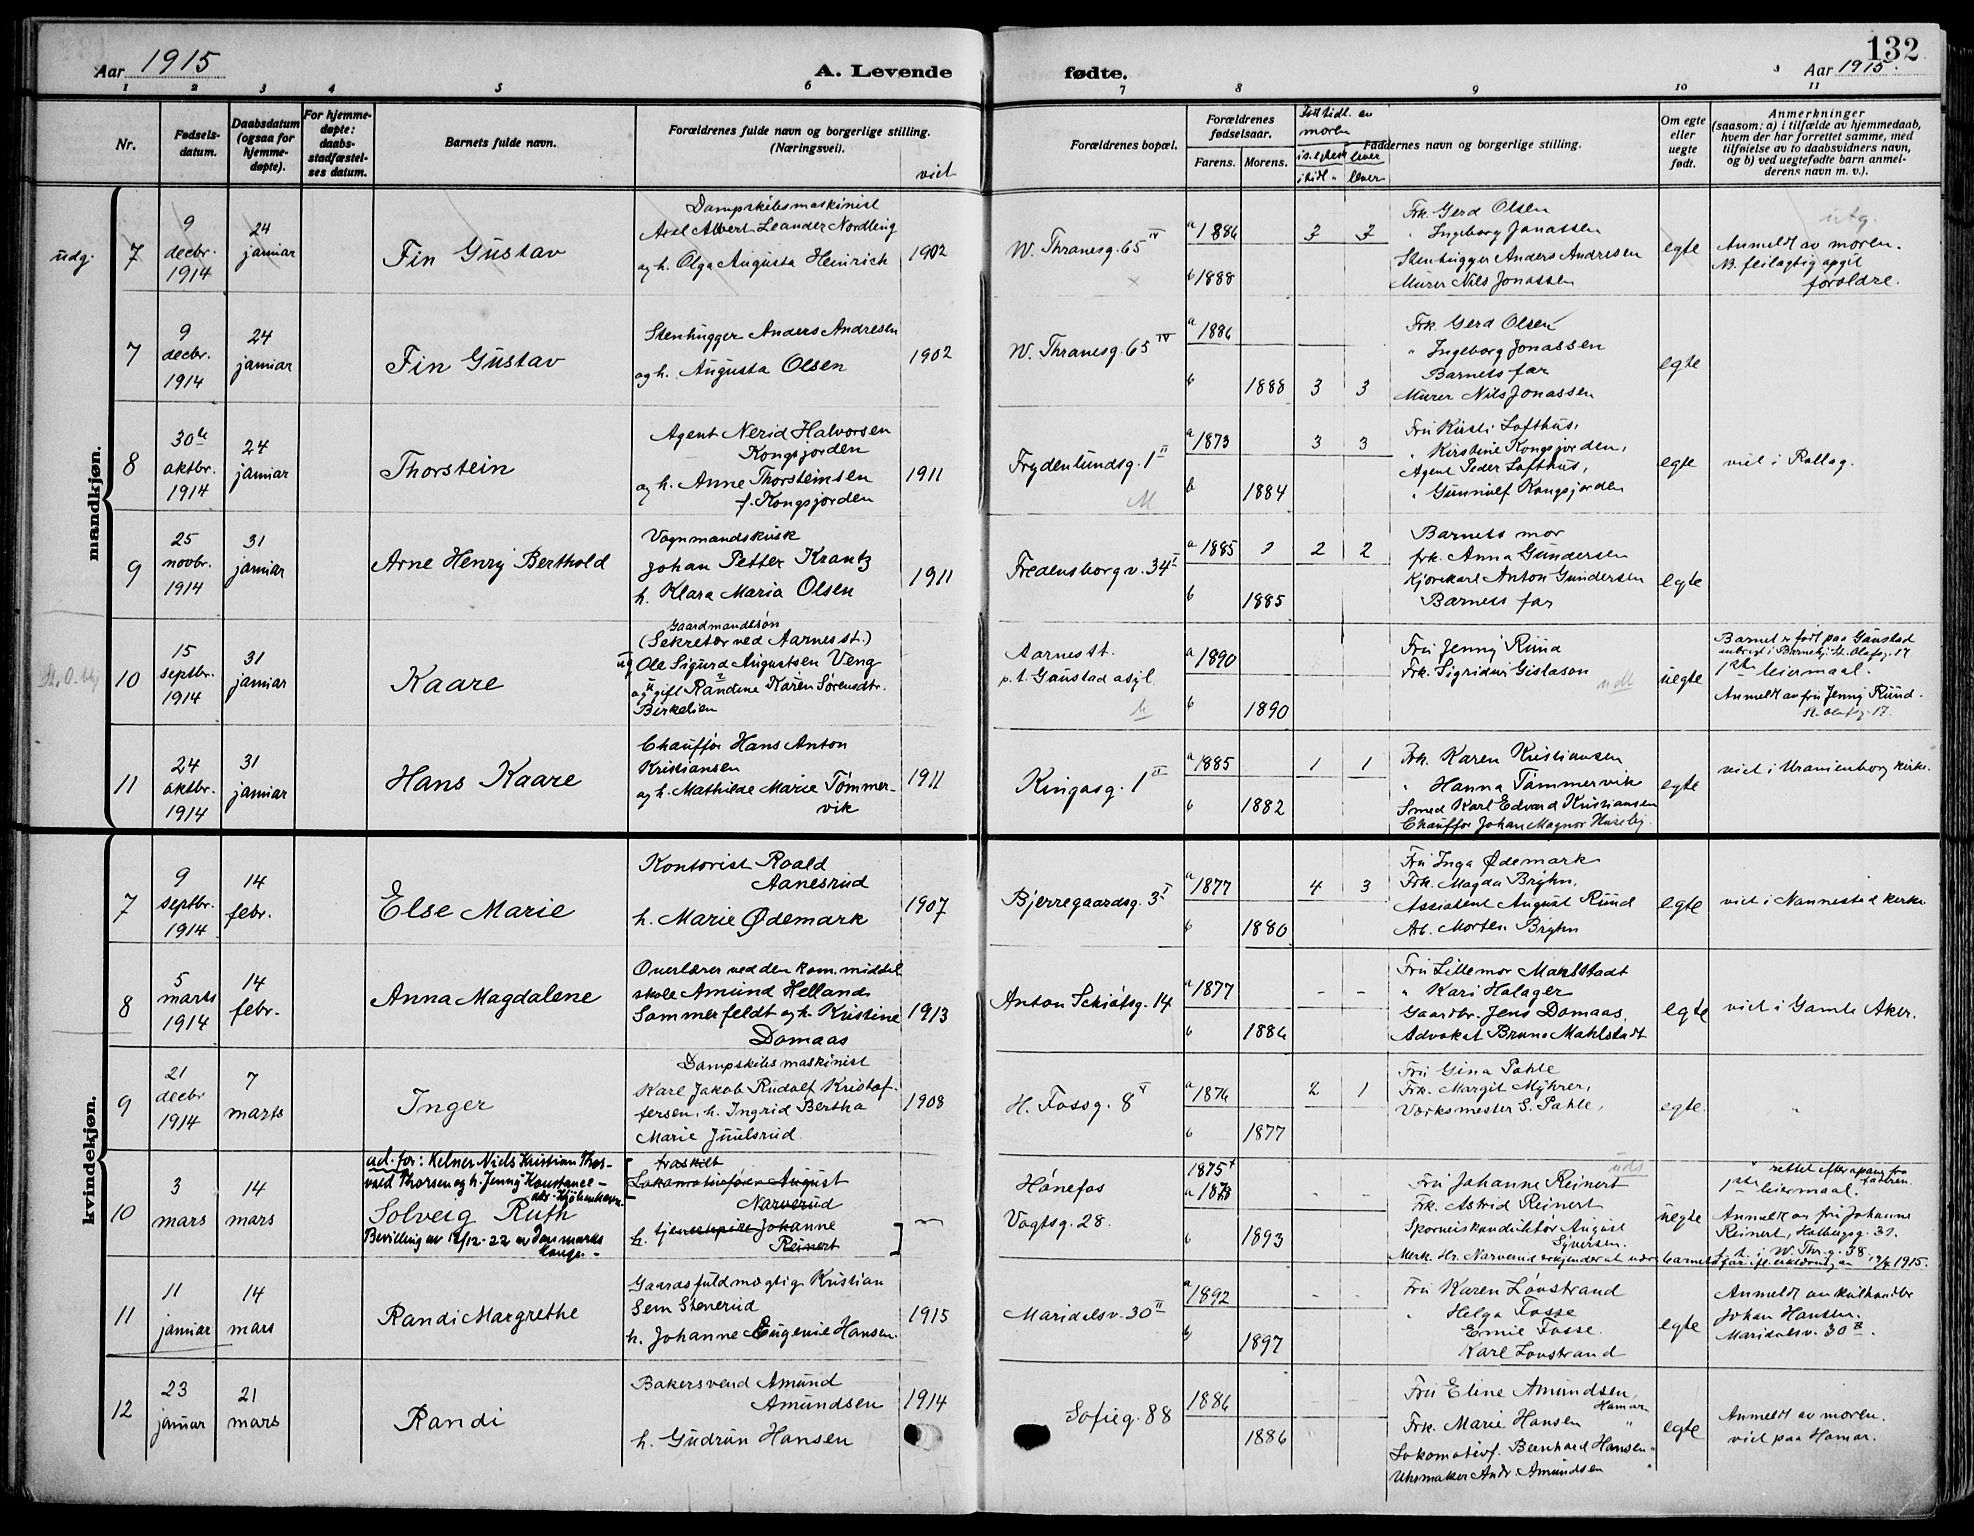 132
Aar 1915
A. Levende fødte.
Aar 1915.
1 2 3 4 5 6 7 8 9 10 11
Nr.
Fødsels-
datum.
Daabsdatum
(ogsaa for
hjemme-
døpte).
For hjemme-
døpte:
daabs-
stadfæstel-
ses datum.
Barnets fulde navn.
Forældrenes fulde navn og borgerlige stilling.
(Næringsvei).
viet
Forældrenes bopæl.
Forældrenes
fødselsaar.
Farens. Morens.
moren
Faddernes navn og borgerlige stilling.
Om egte
eller
uegte
født.
Anmerkninger
(saasom: a) i tilfælde av hjemmedaab,
hvem der har forrettet samme, med
tilføielse av to daabsvidners navn,
og b) ved uegtefødte barn anmel-
derens navn m. v.).
mandkjøn.
udg.
7
9
decbr.
1914
24
januar
Fin Gustav
Dampskibsmaskinist
Axel Albert Leander Nordling
og h. Olga Augusta Heinrich
1902
W. Thranesg. 65 IV
a 1886
b 1888
3 3
Frk. Gerd Olsen
" Ingeborg Jonassen
Stenhugger Anders Andresen
Murer Nils Jonassen
egte
utg.
Anmeldt av moren.
N. feilagtig opgit
foreldre.
7
9
decbr.
1914
24
januar
Fin Gustav
Stenhugger Anders Andresen
og h. Augusta Olsen
1902
W. Thranesg. 65 IV
a 1886
b 1888 3 3
Frk. Gerd Olsen
" Ingeborg Jonassen
Barnets far
Murer Nils Jonassen
egte
8
30te
oktbr.
1914
24
januar
Thorstein
Agent Nerid Halvorsen
Kongsjorden
og h. Anne Thorsteinsen
f. Kongsjorden
1911
Frydenlundsg. 1 II
M
a 1873 3 3
b 1884
Fru Kirsti Lofthus,
" Kirstine Kongsjorden,
Agent Peder Lofthus,
" Gunnulf Kongsjorden
egte
viet i Rollag.
9
25
novbr.
1914
31
januar
Arne Henry Berthold
Vognmandskusk
Johan Petter Krantz
h. Klara Maria Olsen
1911
Fredensborgv. 34 I
a 1885 2 2
b 1885
Barnets mor
frk. Anna Gundersen
Kjørekarl Anton Gundersen
Barnets far
egte
10
15
septbr.
1914
31
januar
Kaare
Gaardmandssøn
(Sekretær ved Aarnes st.)
ug Ole Sigurd Augustsen Veng
og ugift Randine Karen Sørensdtr.
Birkelien
Aarnes st.
p. t. Gaustad asyl
a 1890
b 1890
Fru Jenny Ruud
Frk. Sigridur Gislason
uegte
Barnet er født paa Gaustad
1ste leiermaal.
Anmeldt av fru Jenny Ruud.
St. Olafsg. 17.
11
24
oktbr.
1914
31
januar
Hans Kaare
Chauffør Hans Anton
Kristiansen
og h. Mathilde Marie Tømmer-
vik
1911
Kingosg. 1 II
a 1885 1 1
b 1882
Frk. Karen Kristiansen
" Hanna Tømmervik
Smed Karl Edvard Kristiansen
Chauffør Johan Magnor Huseby.
egte
viet i Uranienborg kirke.
kvindekjøn.
7
9
septbr.
1914
14
febr.
Else Marie
Kontorist Roald
Aanesrud
h. Marie Ødemark
1907
Bjerregaardsg. 3 I
a 1877 4 3
b 1880
Fru Inga Ødemark
Frk. Magda Bryhn,
Assistent August Ruud
Ab. Morten Bryhn
egte
viet i Nannestad kirke.
8
5
marts
1914
14
febr.
Anna Magdalene
Overlærer ved den kom. middel
skole Amund Hellands
Sommerfeldt og h. Kristine
Domaas
1913
Anton Schiøtsg. 14
a 1877 - -
b 1886
Fru Lillemor Mahlstadt
" Kari Halager
Gaardbr. Jens Domaas,
Advokat Bruno Mahlstadt
egte
viet i Gamle Aker.
9
21
decbr
1914
7
marts
Inger
Dampskibsmaskinist
Karl Jakob Rudolf Kristof-
fersen, h. Ingrid Bertha
Marie Juulsrud.
1908
H. Fossg. 8 V
a 1876 2 1
b 1877
Fru Gina Pahle
Frk. Margit Myhrer,
Værksmester S. Pahle,
egte
10
3
mars
14
mars
ad. for: Kelner Niels Kristian Thor-
vald Thorsen og h. Jenny Konstance -
adr. Kjøbenhavn.
Solveig Ruth
Bevilling av 12/12-22 av Danmarks
konge. -
fraskilt
Lokomotivfører August
Narverud
h. tjenestepike Johanne
Reinert
Hønefos
Vogtsg. 28.
1875
a 1878 - -
b 1893
Fru Johanne Reinert
Frk. Astrid Reinert
Sporveiskonduktør August
Syversen.
Merk. Hr. Narverud erkjender at være barnets far
uegte
1ste leiermaal.
Anmeldt av fru Johanne
Reinert, Holbergsg. 31.
p. t. i W. Thr. g. 58.
11
11
januar
14
mars
Randi Margrethe
Gaardsfuldmægtig Kristian
Sem Stenerud
h. Johanne Eugenie Hansen.
1915
Maridalsv. 30 II
a 1892 - -
b 1897
Fru Karen Løvstrand
" Helga Fosse
Emil Fosse.
Karl Løvstrand
egte
Anmeldt av kulhandler
Johan Hansen.
Maridalsv. 30 B.
12
23
januar
21
mars
Randi
Bakersvend Amund
Amundsen
h. Gudrun Hansen
1914
Sofieg. 88
1886
1886
Fru Eline Amundsen,
Hamar
Frk. Marie Hansen "
Lokomotivf. Bernhard Hansen "
Uhrmaker Andr. Amundsen "
egte
Anmeldt av moren.
viet paa Hamar.